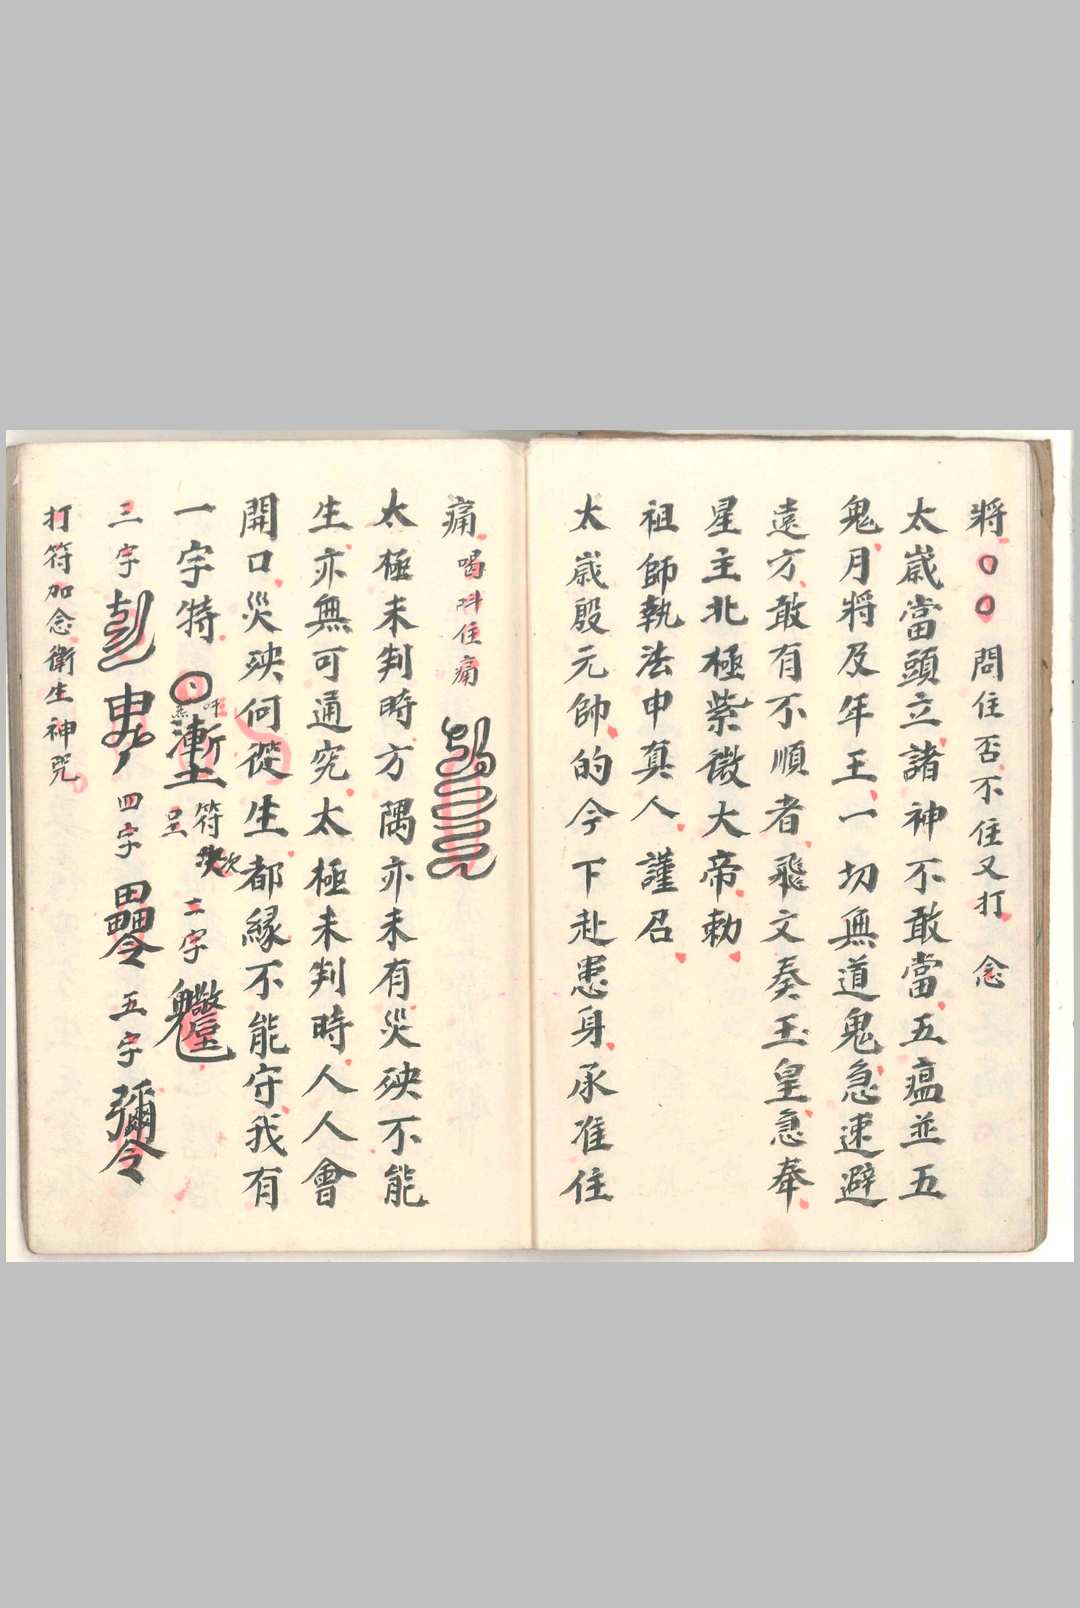 將〇〇問住否不住又打 念
太歲當頭立諸神不敢當五瘟並五
鬼月將及年王一切無道鬼急速避
遠方敢有不順者飛文奏玉皇急奉
星主北極紫微大帝勅
祖師執法申真人謹召
太歲殷元帥的令下赴患身承准住
痛 喝 住痛
太極未判時方隅亦未有災殃不能
生亦無可通究太極未判時人人會
開口災殃何從生都緣不能守我有
一字特 符 呈 二字
三字 四字 五字
打符加念衛生神咒